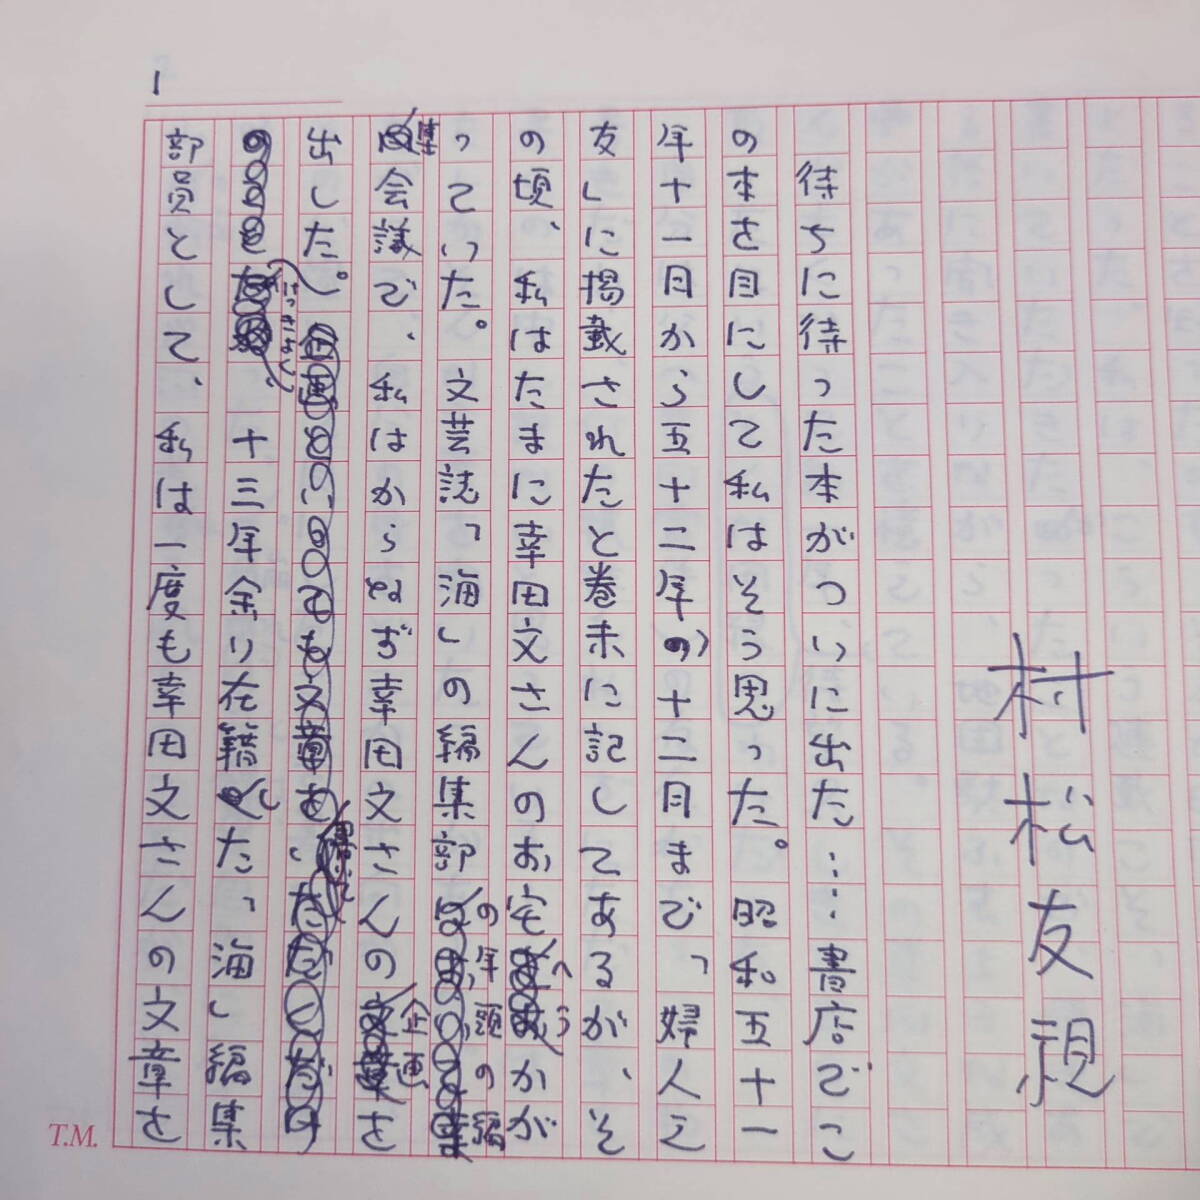 1
村松友視
待ちに待った本がついに出た…書店でこ
の本を目にして私はそう思った。昭和五十一
年十一月から五十二年の十二月まで、「婦人之
友」に掲載されたと巻末に記してあるが、そ
の頃、私はたまに幸田文さんのお宅へうかが
っていた。文芸誌「海」の編集部の年頭の編
集会議で、私はかならず幸田文さんの企画を
出した。
けっきょく、十三年余り在籍した「海」編集
部員として、私は一度も幸田文さんの文章を
T.M.